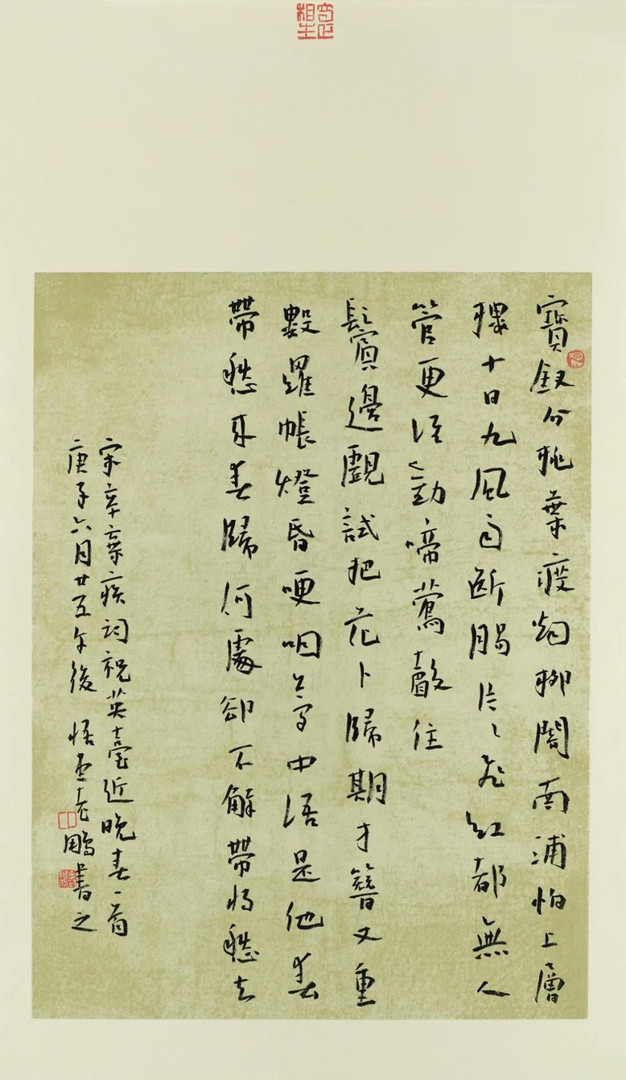 寶釵分桃葉渡烟柳闇南浦怕上層
樓十日九風雨斷腸片〻飛紅都無人
管更誰勸啼鶯聲住
鬢邊覷試把花卜歸期才簪又重
數羅帳燈昏哽咽夢中語是他春
帶愁來春歸何處卻不解帶將愁去
宋辛棄疾詞祝英臺近晚春一首
庚子六月廿五午後 老鵬書之